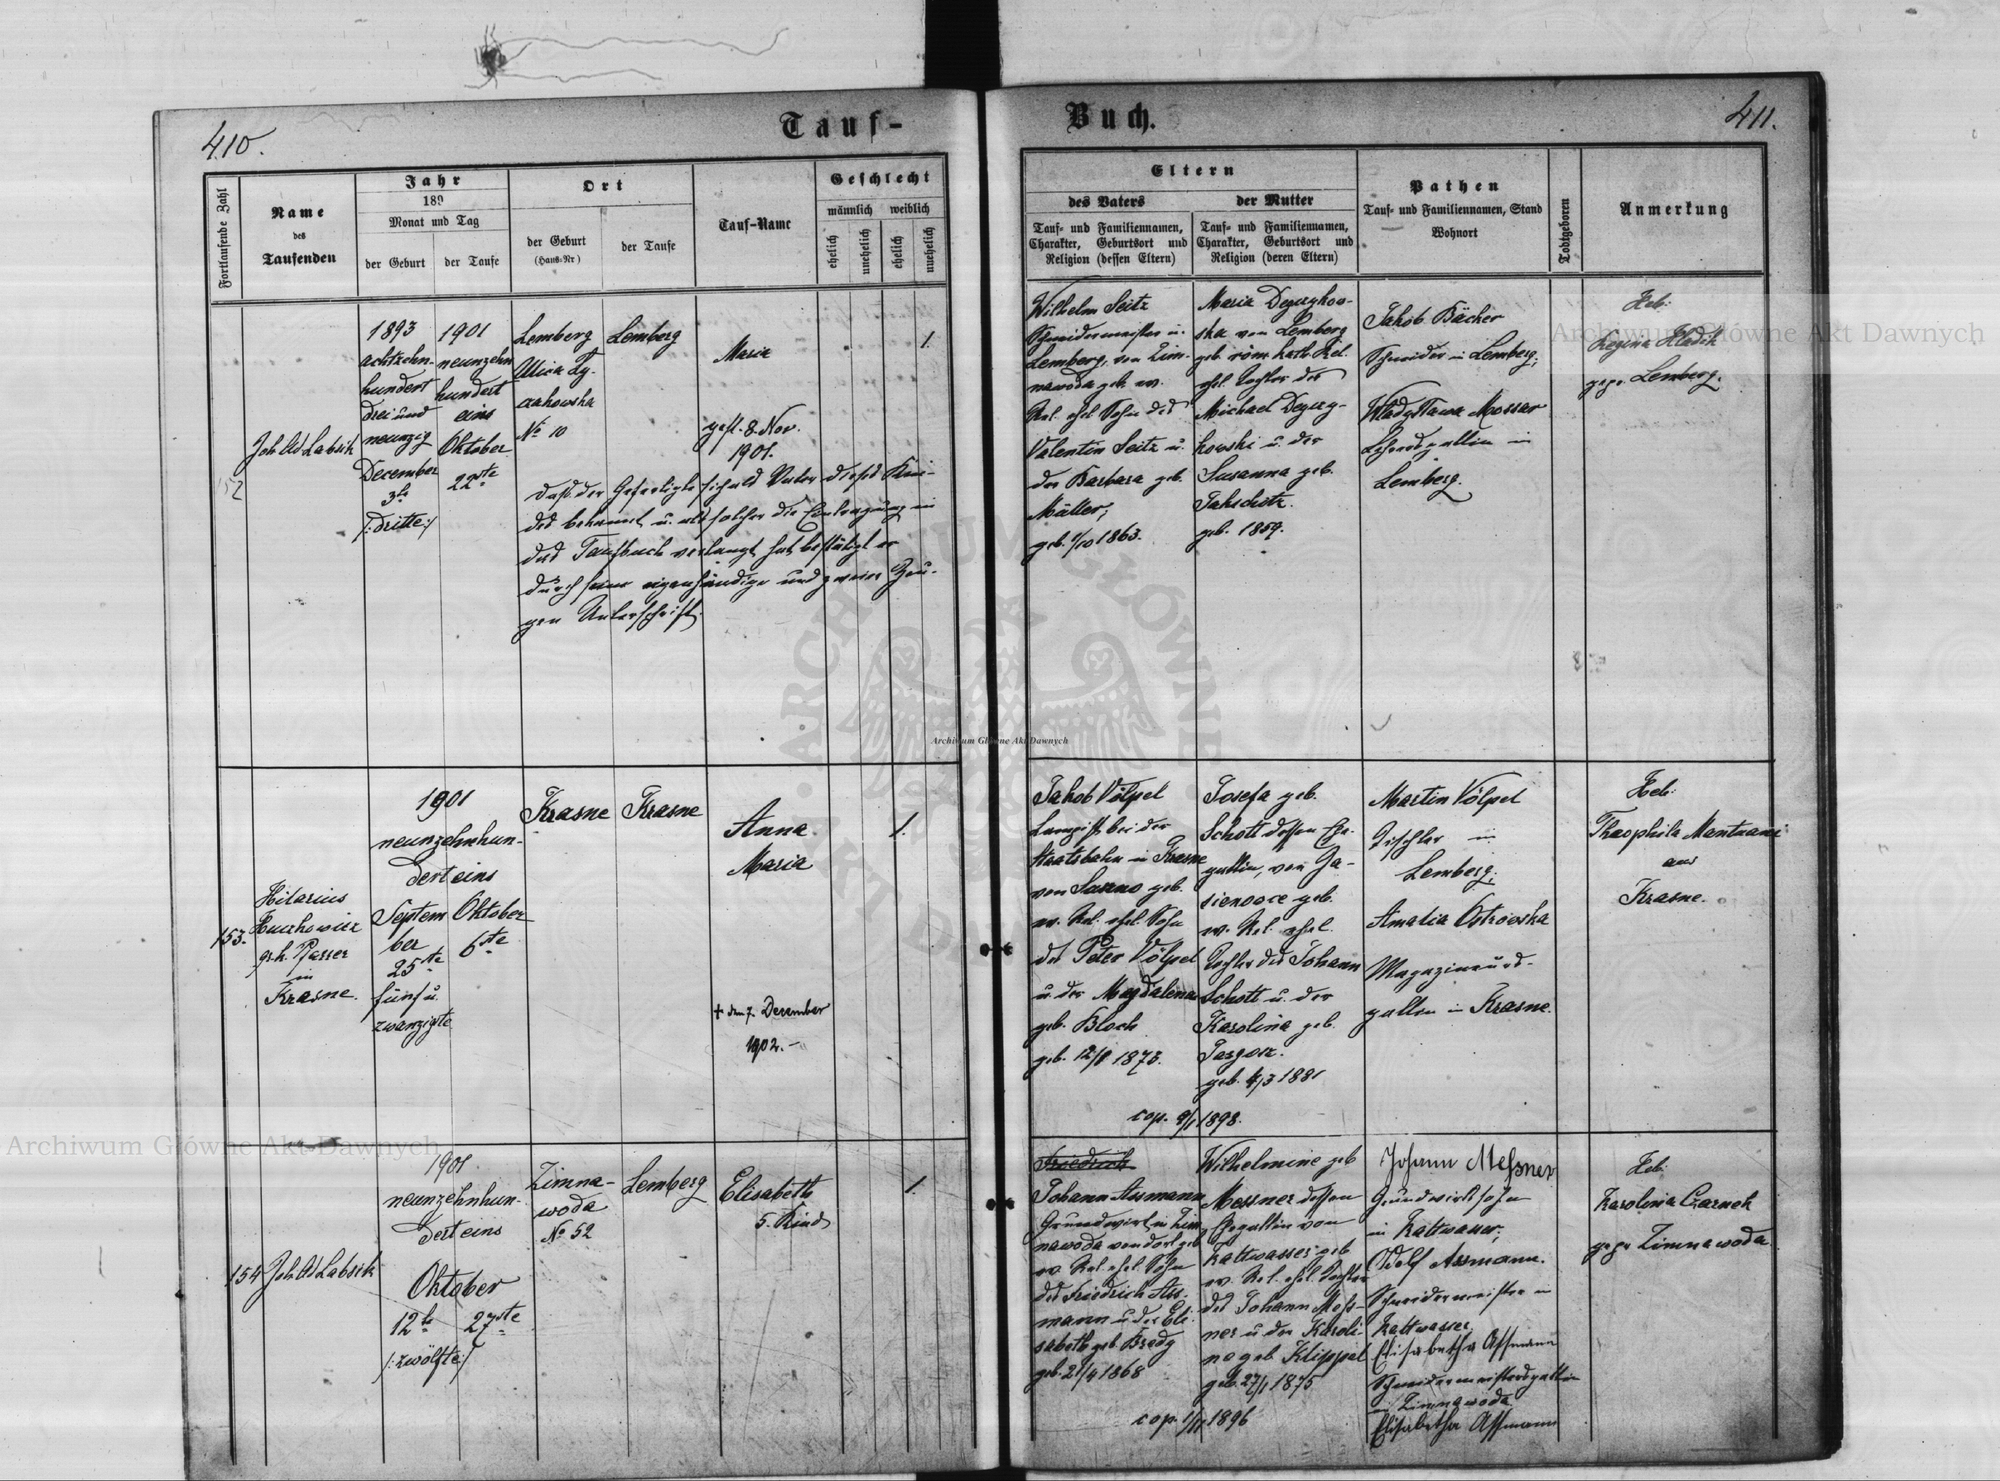 410.
Tauf-
Buch.
411.
Fortlaufende Zahl
Name
des
Taufenden
Jahr
189
Monat und Tag
der Geburt
der Taufe
Ort
der Geburt
(Haus-Nr)
der Taufe
Tauf-Name
Geschlecht
männlich
weiblich
ehelich
unehelich
ehelich
unehelich
Eltern
des Vaters
Tauf- und Familiennamen,
Charakter, Geburtsort und
Religion (dessen Eltern)
der Mutter
Tauf- und Familiennamen,
Charakter, Geburtsort und
Religion (deren Eltern)
Pathen
Tauf- und Familiennamen, Stand
Wohnort
Todtgeboren
Anmerkung
152
1893
achtzehn
hundert
drei und
neunzig
December
3te
/:dritte:/
1901
neunzehn
hundert
eins
Oktober
22ste
Lemberg
Ulica
No 10
Lemberg
Maria
gest. 8. Nov.
1901.
1.
daß der Gefertigte sich als Vater dieses Kin-
des bekannt u. als solcher die Eintragung in
das Taufbuch verlangt hat bestätigt er
durch seine eigenhändige und zweier Zeu-
gen Unterschrift.
Wilhelm Seitz
Schneidermeister in
Lemberg, von Zim-
nawoda geb. ev.
Rel. ehel. Sohn des
Valentin Seitz u.
der Barbara geb.
Müller;
geb. 1/10 1863.
Maria
ska von Lemberg
geb. röm. kath. Rel.
ehel. Tochter des
Michael
kowski u. der
Susanna geb.
geb. 1859.
Jakob Bächer
Schneider in Lemberg;
Władysława Mossar
in
Lemberg.
Heb:
Regina Hladik
gepr. Lemberg.
153.
Hilarius
gr. k. Pfarrer
in
Krasne.
1901
neunzehnhun-
dert eins
Septem
ber
25te
fünf u.
zwanzigste
Oktober
6te
Krasne
Krasne
Anna
Maria
+ den 7. December
1902.-
1.
Jakob Völpel
Lampist bei der
Staatsbahn in Krasne
von geb.
ev. Rel. ehel. Sohn
des Peter Völpel
u. der Magdalena
geb. Bloch
geb. 12/8 1873.
Josefa geb.
Schott dessen Ehe-
gattin, von
geb.
ev. Rel. ehel.
Tochter des Johann
Schott u. der
Karolina geb.
geb. 4/3 1881
cop. 9/1 1898.
Martin Völpel
Tischler in
Lemberg;
Amalia Ostrowska
Magazineurs-
gattin in Krasne.
Heb:
Theophila Mantuani
aus
Krasne.
154
Joh. Ad. Labsik
1901
neunzehnhun-
dert eins
Oktober
12te 27ste
/:zwölfte:/
Zimna-
woda
No 52
Lemberg
Elisabeth
5. Kind
1.
Friedrich
Johann Assmann
Grundwirt in Zim
nawoda von dort geb
ev. Rel. ehel. Sohn
des Friedrich Ass-
mann u. der Eli-
sabeth geb. Bredy
geb. 21/4 1868
Wilhelmine geb
Messner dessen
Ehegattin von
Kaltwasser geb
ev. Rel. ehel. Tochter
des Johann Mess-
ner u der Karoli-
ne geb. Klippel
geb. 27/1 1875
cop. 1/11 1896
Johann Meßner
Grundwirtssohn
in Kaltwasser;
Adolf Assmann.
Schneidermeister in
Kaltwasser;
Elisabetha Aßmann
Schneidermeistersgattin
in Zimnawoda
Elisabetha Aßmann
Heb:
Karolina Czarnek
gepr Zimnawoda
Archiwum Główne Akt Dawnych
Archiwum Główne Akt Dawnych
Archiwum Główne Akt Dawnych